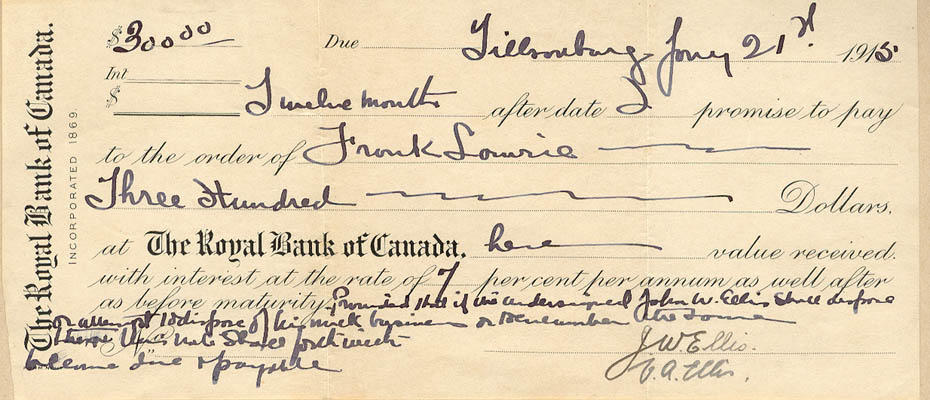 The Royal Bank of Canada.
INCORPORATED 1869.
$300 00
Due
Tillsonburg Jany 21st 1915
Int
$
Twelve months after date I promise to pay
to the order of Frank Lowrie
Three Hundred Dollars.
at The Royal Bank of Canada, here value received.
with interest at the rate of 7 per cent per annum as well after
as before maturity. Provided that if the undersigned John W. Ellis shall dispose
or attempt to dispose of his milk business or encumber the same
this note shall forthwith
become due & payable
J. W. Ellis.
A. Ellis.